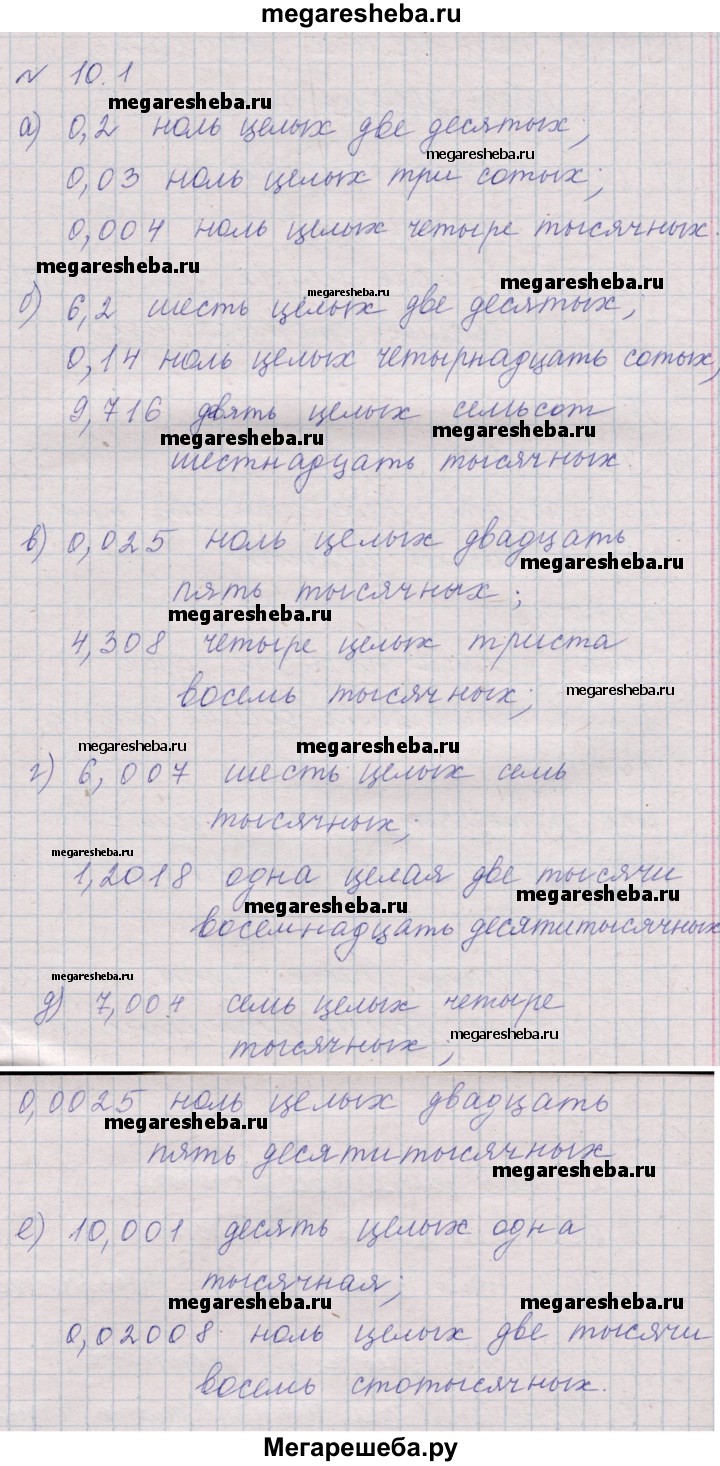 megaresheba.ru
№ 10.1
megaresheba.ru
а) 0,2 ноль целых две десятых;
megaresheba.ru
0,03 ноль целых три сотых;
0,004 ноль целых четыре тысячных.
megaresheba.ru
megaresheba.ru
megaresheba.ru
б) 6,2 шесть целых две десятых;
0,14 ноль целых четырнадцать сотых;
9,716 девять целых семьсот
megaresheba.ru
megaresheba.ru
шестнадцать тысячных.
в) 0,025 ноль целых двадцать
megaresheba.ru
пять тысячных;
megaresheba.ru
4,308 четыре целых триста
восемь тысячных;
megaresheba.ru
megaresheba.ru
megaresheba.ru
г) 6,007 шесть целых семь
тысячных;
megaresheba.ru
1,2018 одна целая две тысячи
megaresheba.ru
megaresheba.ru
восемнадцать десятитысячных
megaresheba.ru
д) 7,004 семь целых четыре
megaresheba.ru
тысячных;
0,0025 ноль целых двадцать
megaresheba.ru
пять десятитысячных
megaresheba.ru
е) 10,001 десять целых одна
тысячная;
megaresheba.ru
megaresheba.ru
0,02008 ноль целых две тысячи
восемь стотысячных.
Мегарешеба.ру